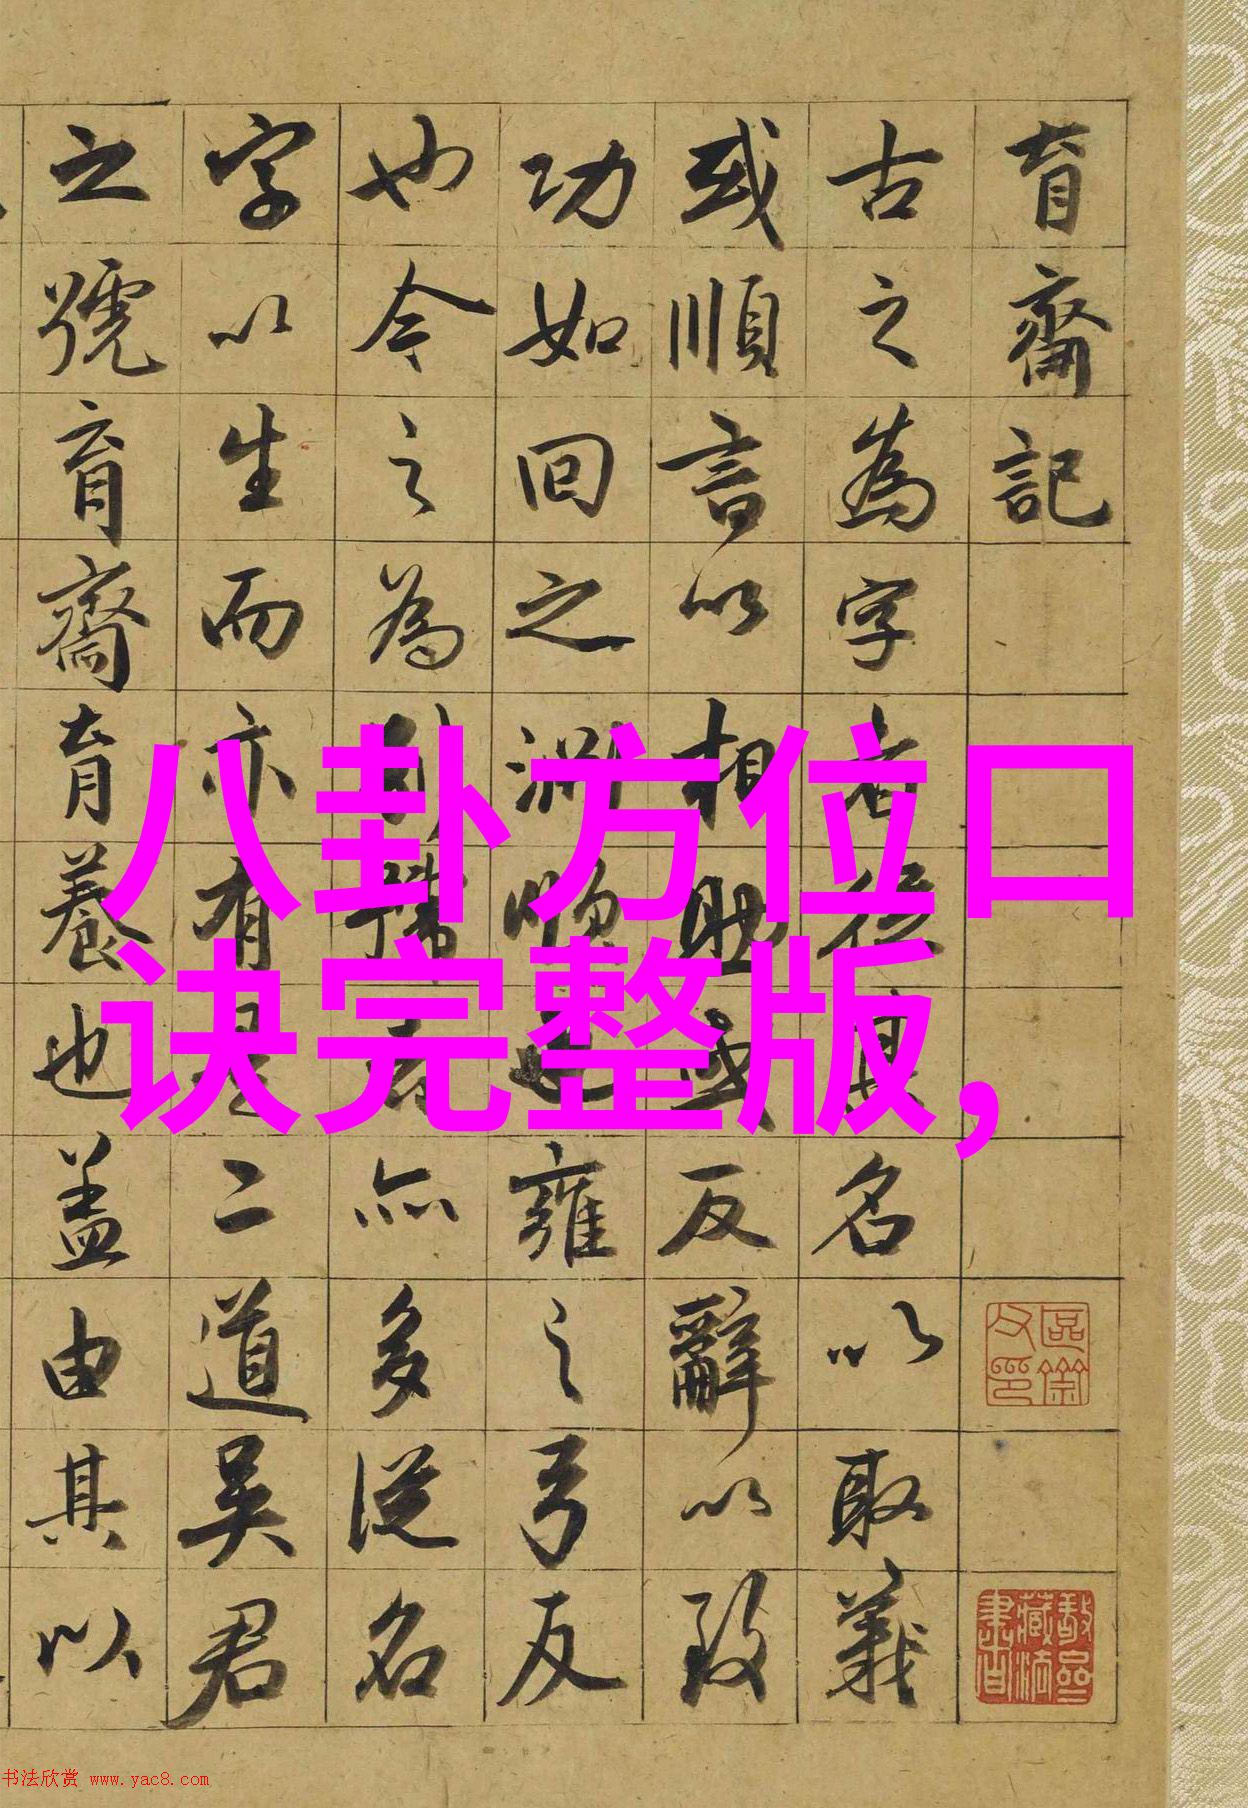 育齋記
古之為字者從其名以取義
或順言以相助或反辭以致
功如回之淵順也雍之弓反
也今之為別號者亦多從名
字以生而亦有是二道吳君
之號育齋育養也蓋由其以
八卦方位口
诀完整版，
书法欣赏 www.yac8.com